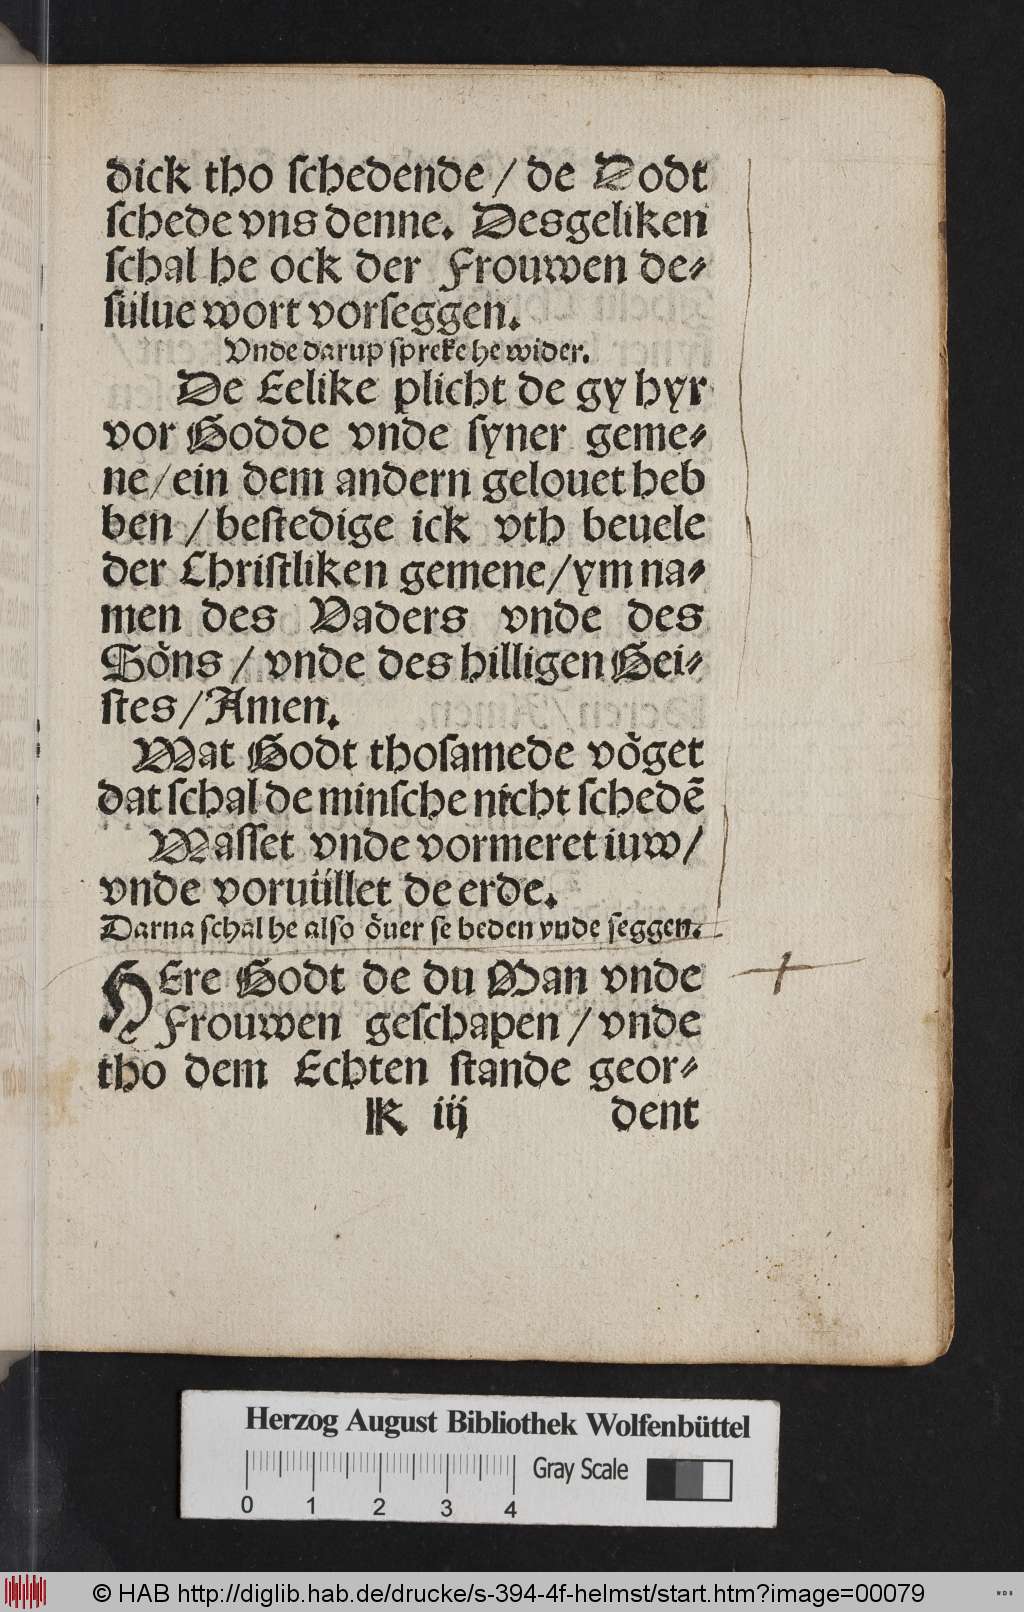 dick tho ſchedende / de Dodt
ſchede vns denne. Desgeliken
ſchal he ock der Frouwen de⸗
ſülue wort vorſeggen.
Vnde darup ſpreke he wider.
De Eelike plicht de gy hyr
vor Godde vnde ſyner geme⸗
ne / ein dem andern gelouet heb
ben / beſtedige ick vth beuele
der Chriſtliken gemene / ym na⸗
men des Vaders vnde des
Söns / vnde des hilligen Gei⸗
ſtes / Amen.
Wat Godt thoſamede vöget
dat ſchal de minſche nicht ſchedē
Waſſet vnde vormeret iuw /
vnde voruüllet de erde.
Darna ſchal he alſo öuer ſe beden vnde ſeggen.
HEre Godt de du Man vnde
Frouwen geſchapen / vnde
tho dem Echten ſtande geor⸗
K iij dent
Herzog August Bibliothek Wolfenbüttel
Gray Scale
0 1 2 3 4
© HAB http://diglib.hab.de/drucke/s-394-4f-helmst/start.htm?image=00079